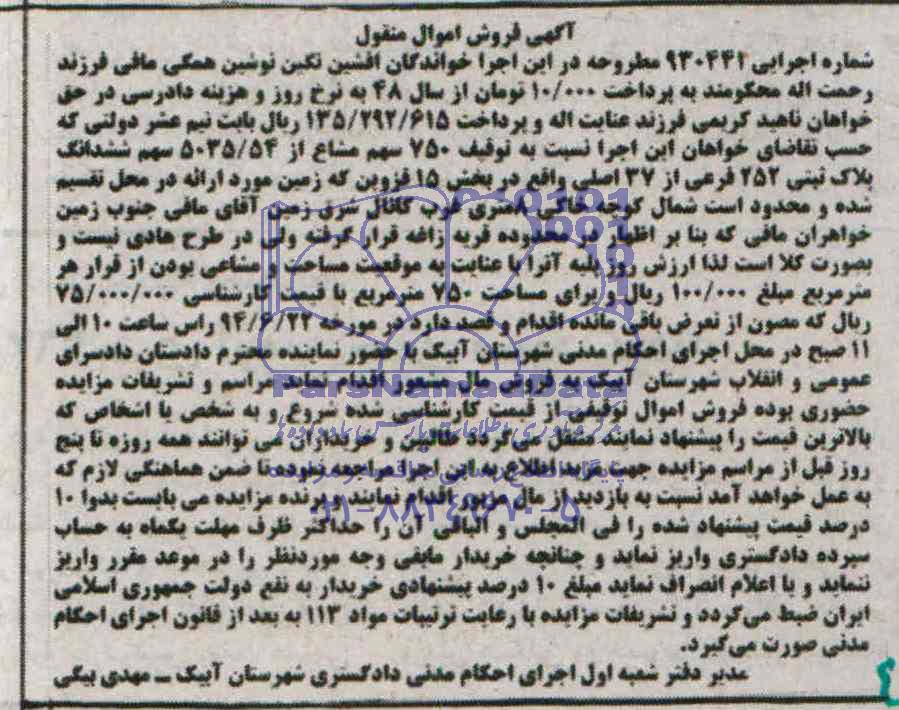 آگهی فروش اموال منقول
شماره اجرایی ۹۳۰۴۴۲ مطروحه در این اجرا خواندگان افشین نگین نوشین همگی مافی فرزند
رحمت اله محکومند به پرداخت ۱۰/۰۰۰ تومان از سال ۴۸ به نرخ روز و هزینه دادرسی در حق
خواهان ناهید کریمی فرزند عنایت اله و پرداخت ۱۳۵/۲۹۲/۶۱۵ ریال بابت نیم عشر دولتی که
حسب تقاضای خواهان این اجرا نسبت به توقیف ۷۵۰ سهم مشاع از ۵۰۳۵/۵۴ سهم ششدانگ
پلاک ثبتی ۲۵۲ فرعی از ۳۷ اصلی واقع در بخش ۱۵ قزوین که زمین مورد ارائه در محل تقسیم
شده و محدود است شمال کوچه خاکی ۸متری غرب کانال شرق زمین آقای مافی جنوب زمین
خواهران مافی که بنا بر اظهار در محدوده قریه زاغه قرار گرفته ولی در طرح هادی نیست و
بصورت کلا است لذا ارزش روز پایه آنرا با عنایت به موقعیت مساحت و مشاعی بودن از قرار هر
مترمربع مبلغ ۱۰۰/۰۰۰ ریال و برای مساحت ۷۵۰ مترمربع با قیمت کارشناسی ۷۵/۰۰۰/۰۰۰
ریال که مصون از تعرض باقی مانده اقدام و قصد دارد در مورخه ۹۴/۶/۲۲ راس ساعت ۱۰ الی
۱۱ صبح در محل اجرای احکام مدنی شهرستان آبیک با حضور نماینده محترم دادستان دادسرای
عمومی و انقلاب شهرستان آبیک به فروش مال اقدام نماید مراسم و تشریفات مزایده
حضوری بوده فروش اموال توقیفی از قیمت کارشناسی شده شروع و به شخص یا اشخاص که
بالاترین قیمت را پیشنهاد نمایند منتقل می‌گردد طالبین و خریداران می توانند همه روزه تا پنج
روز قبل از مراسم مزایده جهت مزید اطلاع به این اجرا مراجعه نموده تا ضمن هماهنگی لازم که
به عمل خواهد آمد نسبت به بازدید از مال مزبور اقدام نمایند. برنده مزایده می بایست بدوا ۱۰
درصد قیمت پیشنهاد شده را فی المجلس و الباقی آن را حداکثر ظرف مهلت یکماه به حساب
سپرده دادگستری واریز نماید و چنانچه خریدار مابقی وجه موردنظر را در موعد مقرر واریز
ننماید و یا اعلام انصراف نماید مبلغ ۱۰ درصد پیشنهادی خریدار به نفع دولت جمهوری اسلامی
ایران ضبط می‌گردد و تشریفات مزایده با رعایت ترتیبات مواد ۱۱۳ به بعد از قانون اجرای احکام
مدنی صورت می‌گیرد.
مدیر دفتر شعبه اول اجرای احکام مدنی دادگستری شهرستان آبیک ــ مهدی بیگی
ParsNamadData
۰۲۱-۸۸۳۴۹۶۷۰-۵